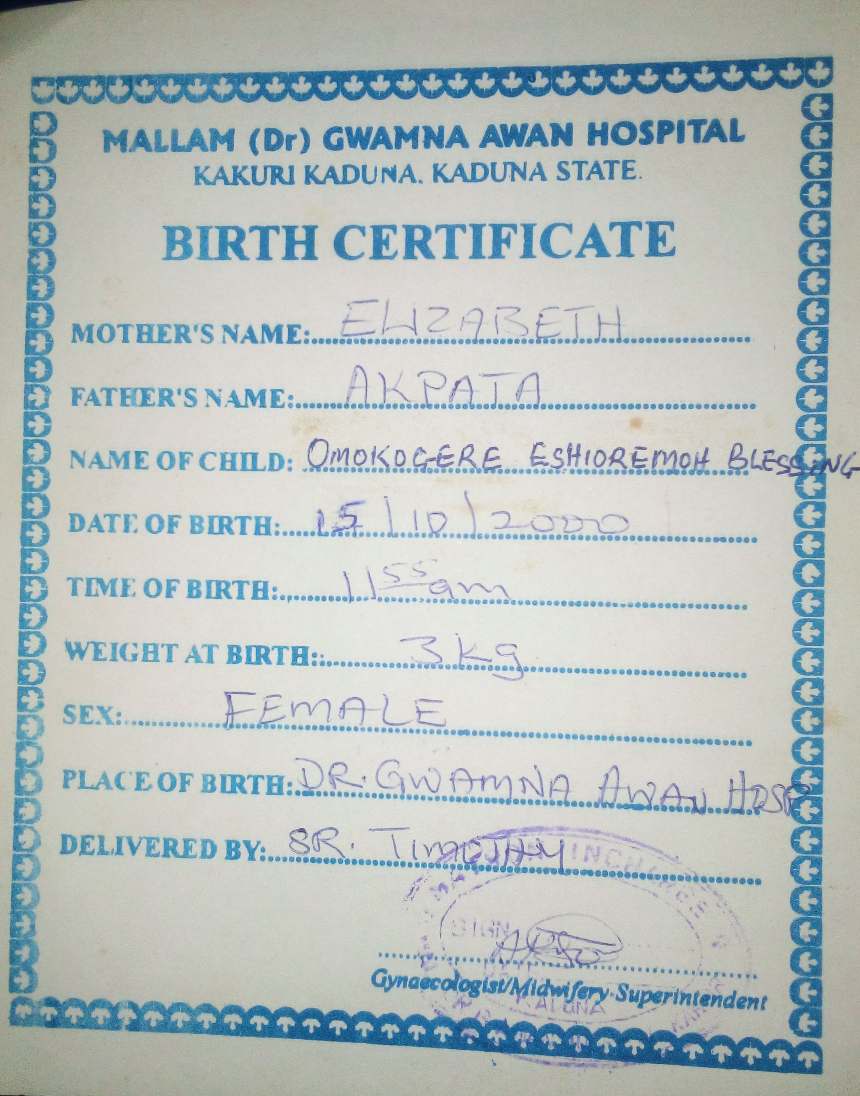 MALLAM (Dr) GWAMNA AWAN HOSPITAL
KAKURI KADUNA. KADUNA STATE.
BIRTH CERTIFICATE
MOTHER'S NAME: ELIZABETH
FATHER'S NAME: AKPATA
NAME OF CHILD: OMOKOGERE ESHIOREMOH BLESSING
DATE OF BIRTH: 15/10/2000
TIME OF BIRTH: 11 55 am
WEIGHT AT BIRTH: 3kg
SEX: FEMALE
PLACE OF BIRTH: DR. GWAMNA AWAN HOSP
DELIVERED BY: SR. TIMOTHY
INCHARGE
SIGN
Gynaecologist/Midwifery Superintendent